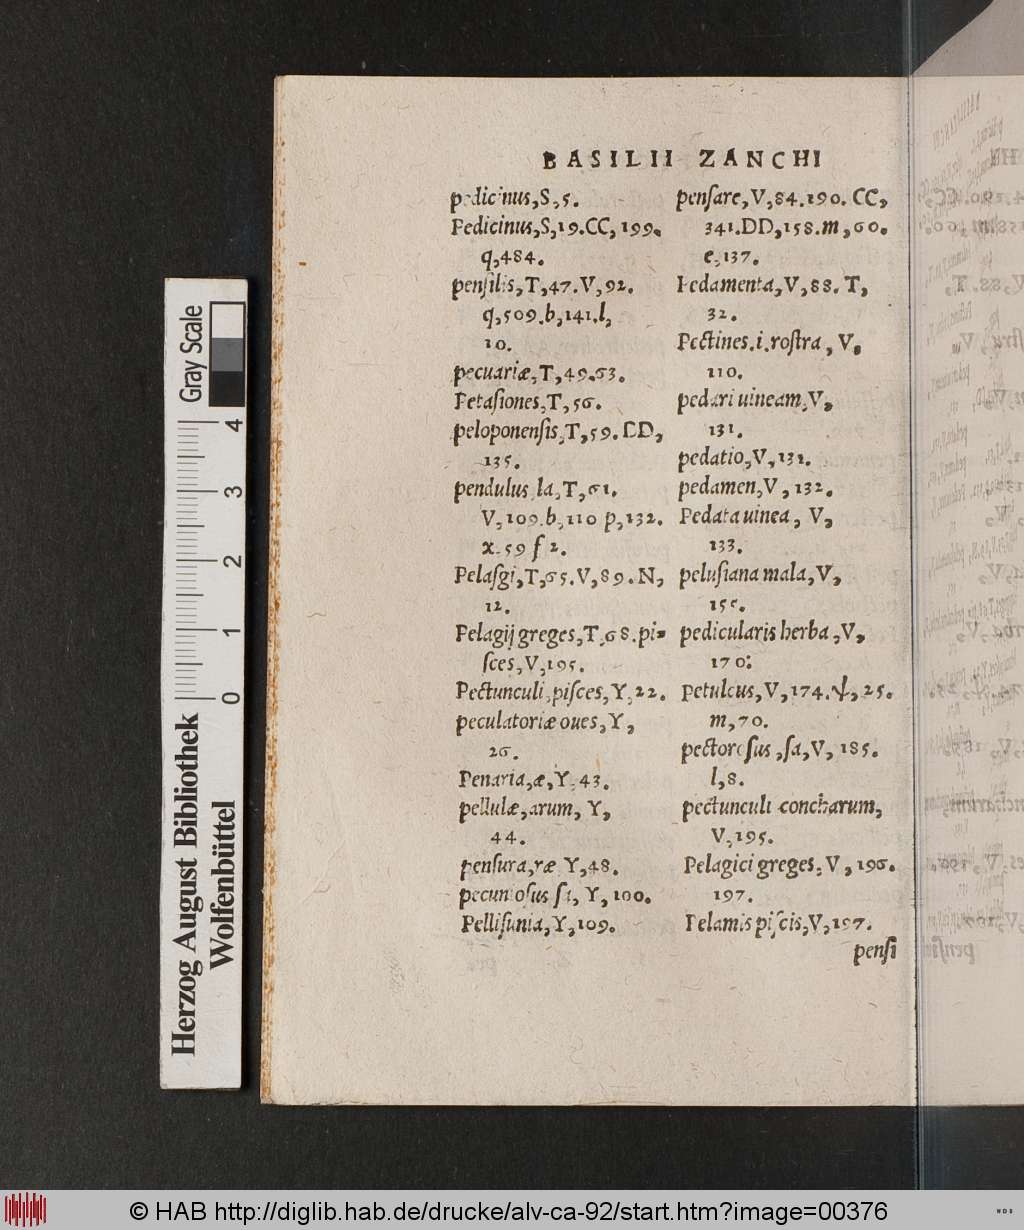 BASILII ZANCHI
pedicinus, S, 5.
Pedicinus, S, 19. CC, 199.
q, 484.
pensilis, T, 47. V, 92.
q, 509. b, 141. l,
10.
pecuariæ, T, 49. 63.
Petasiones, T, 56.
peloponensis, T, 59. DD,
135.
pendulus la, T, 61.
V, 109. b, 110 p, 132.
x. 59 f 2.
Pelasgi, T, 65. V, 89. N,
12.
Pelagij greges, T, 68. pi-
sces, V, 195.
Pectunculi, pisces, Y, 22.
peculatoriæ oues, Y,
26.
Penaria, æ, Y, 43.
pellulæ, arum, Y,
44.
pensura, ræ Y, 48.
pecuniosus sa, Y, 100.
Pellisunia, Y, 109.
pensare, V, 84. 190. CC,
341. DD, 158. m, 60.
e, 137.
Pedamenta, V, 88. T,
32.
Pectines. i. rostra, V,
110.
pedari uineam, V,
131.
pedatio, V, 131.
pedamen, V, 132.
Pedata uinea, V,
133.
pelusiana mala, V,
155.
pedicularis herba, V,
170.
Petulcus, V, 174. ψ, 25.
m, 70.
pectorosus, sa, V, 185.
l, 8.
pectunculi concharum,
V, 195.
Pelagici greges, V, 196.
197.
Pelamis piscis, V, 197.
pensi
Gray Scale
4
3
2
1
0
Herzog August Bibliothek
Wolfenbüttel
© HAB http://diglib.hab.de/drucke/alv-ca-92/start.htm?image=00376